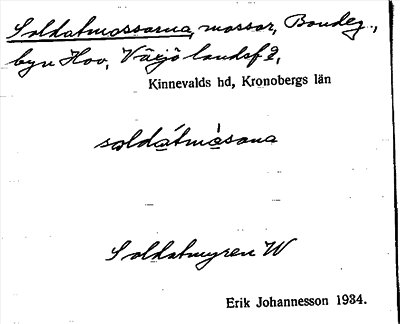 Soldatmossarna, mossar, Bondeg.,
byn Hov, Växjö landsf?,
Kinnevalds hd, Kronobergs län
soldátmåsana
Soldatmyren W
Erik Johannesson 1934.